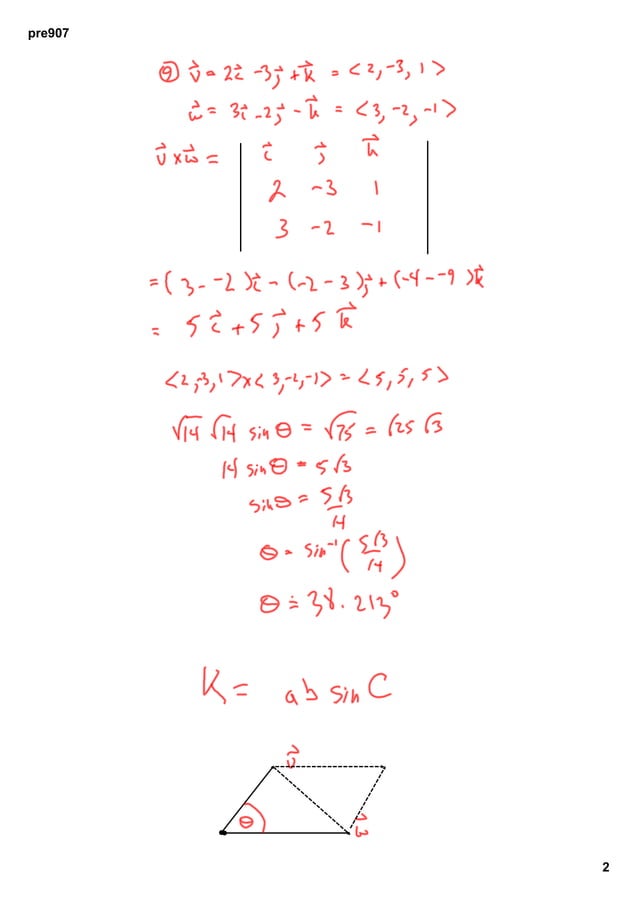 pre907
⑨ v⃗ = 2i⃗ -3j⃗ + k⃗ = <2, -3, 1>
w⃗ = 3i⃗ -2j⃗ - k⃗ = <3, -2, -1>
v⃗ x w⃗ = | i⃗ j⃗ k⃗ |
2 -3 1
3 -2 -1
= (3 - -2)i⃗ - (-2 - 3)j⃗ + (-4 - -9)k⃗
= 5i⃗ + 5j⃗ + 5k⃗
<2, -3, 1> x <3, -2, -1> = <5, 5, 5>
√14 √14 sin θ = √75 = √25 √3
14 sin θ = 5√3
sin θ = 5√3/14
θ = sin⁻¹(5√3/14)
θ ≐ 38.213°
K = ab sin C
v⃗
θ
w⃗
2